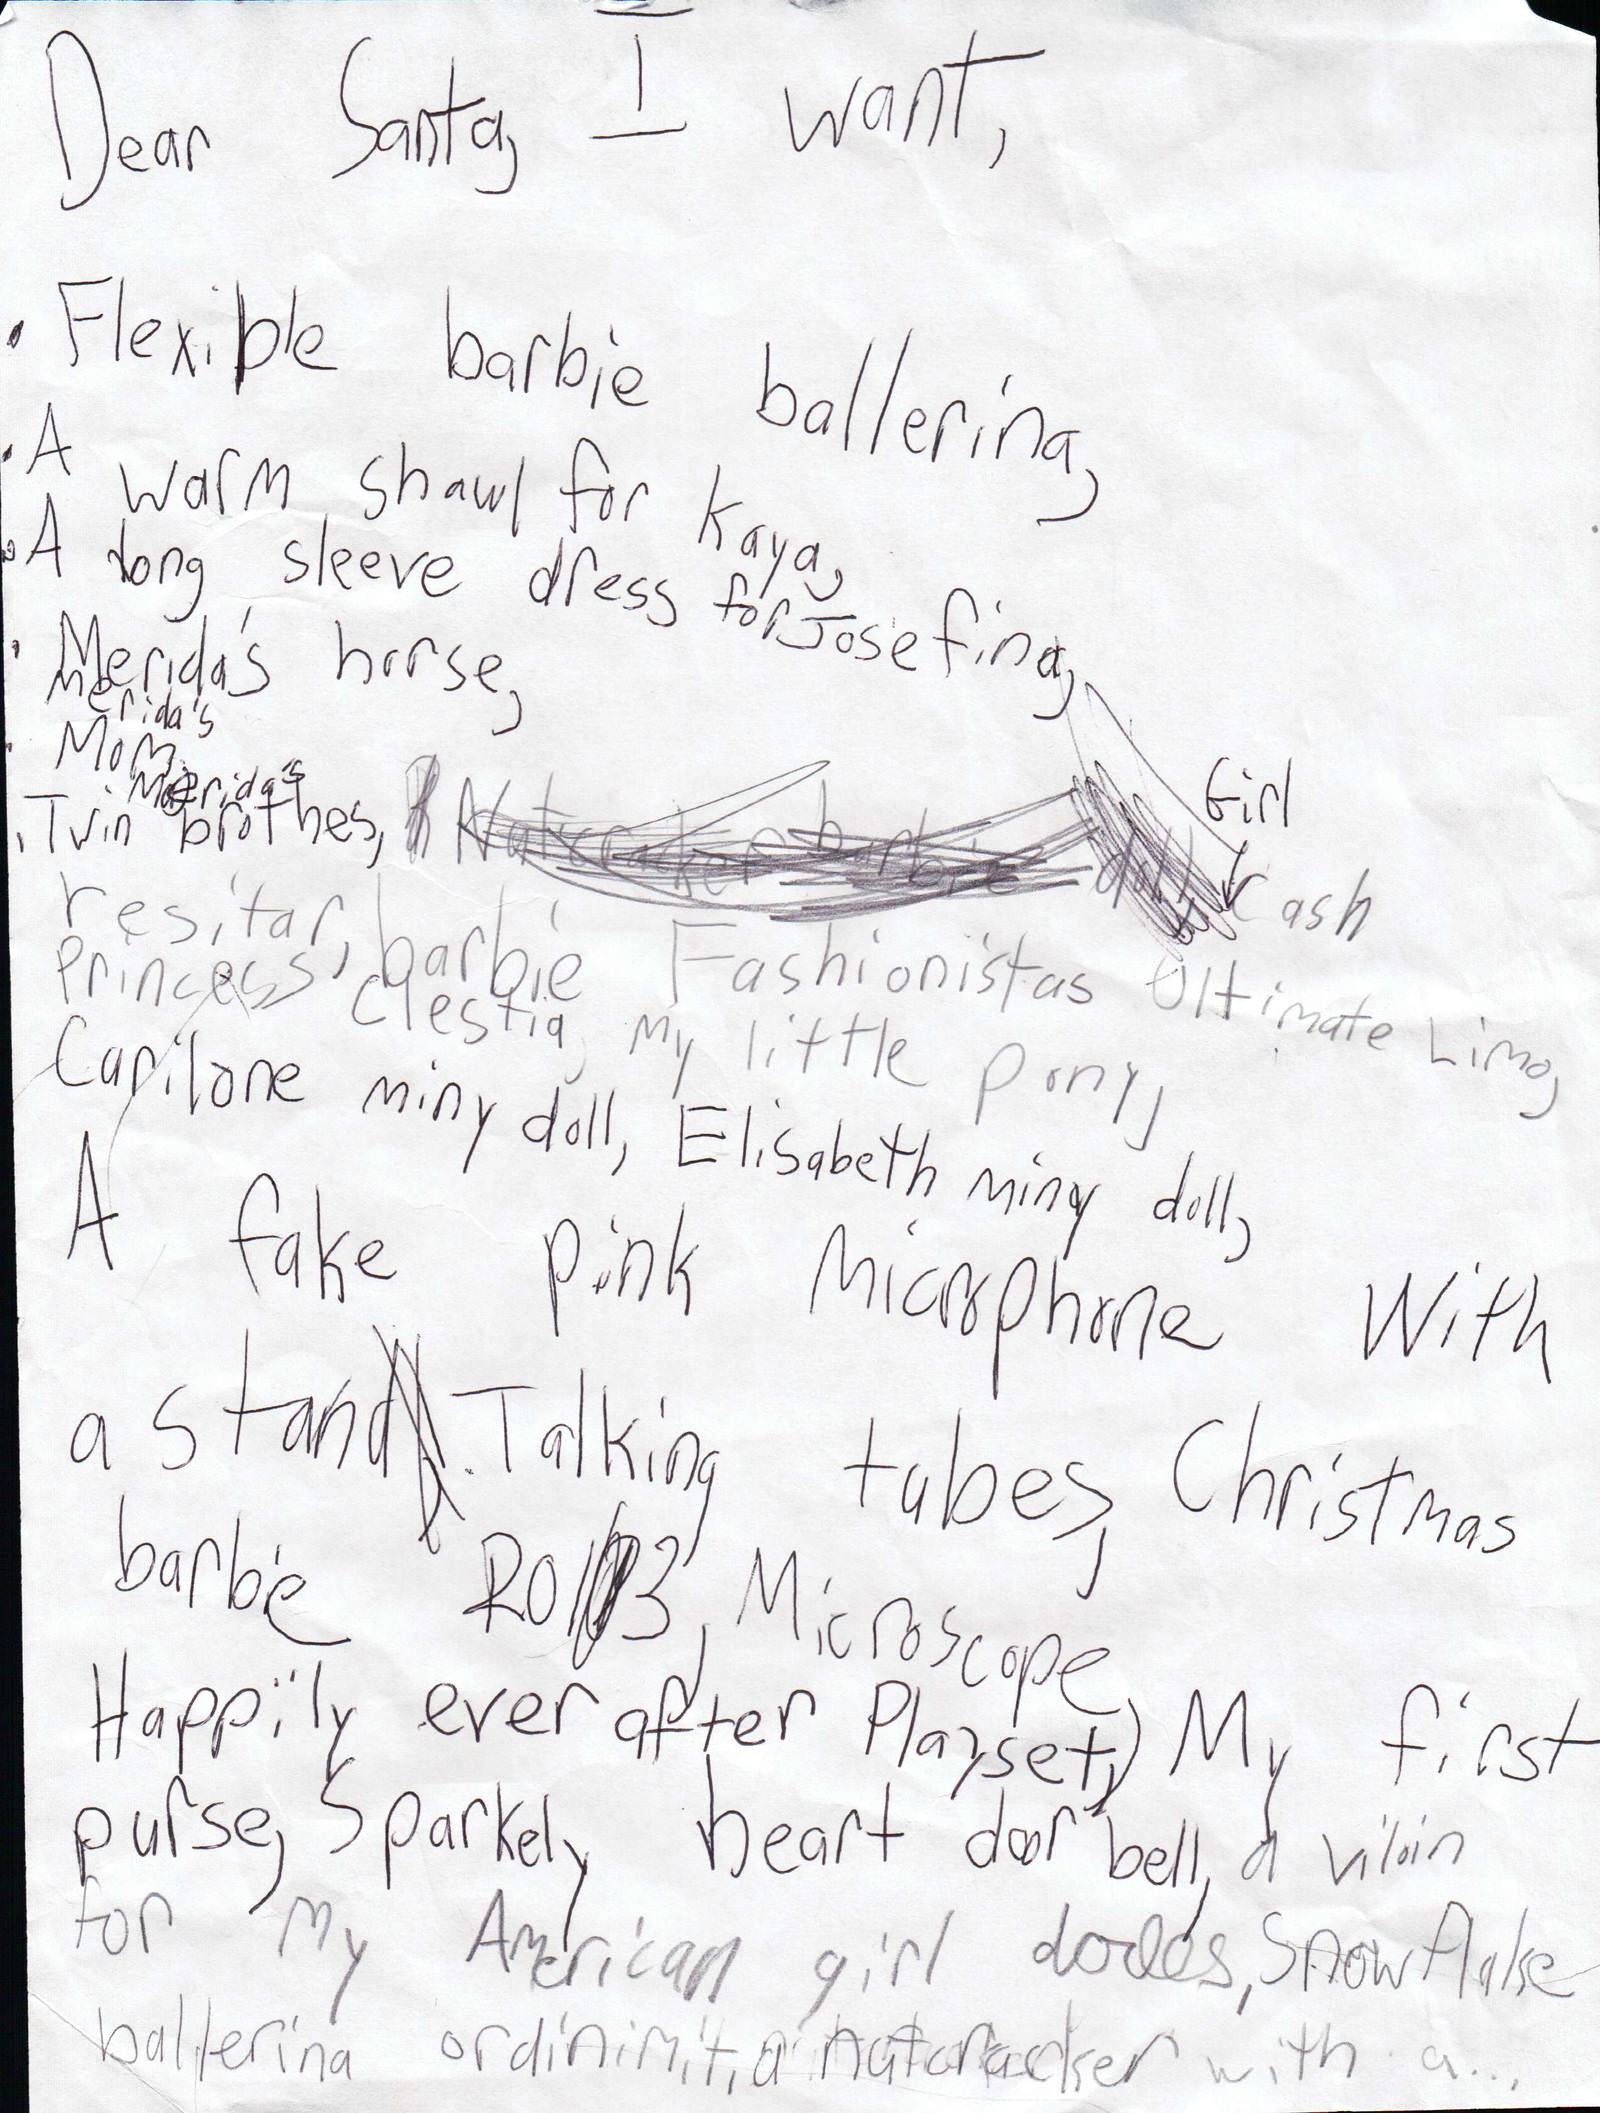 Dear Santa, I want,
• Flexible barbie ballerina,
• A warm shawl for Kaya,
• A long sleeve dress for Josefina,
• Merida's horse,
• Merida's Mom,
• Twin Merida's brothes, Nutcracker barbie doll, Girl Cash
resitar, barbie Fashionistas Ultimate Limo,
Princess Clestia, My little pony,
Carilone miny doll, Elisabeth miny doll,
A fake pink Microphone With
a stand. Talking tubes, Christmas
barbie 2013, Microscope,
Happily ever after Playset, My first
purse, Sparkely heart door bell, a viloin
for My American girl dolles, Snowflake
ballerina ordinimit, a nutcracker with a...